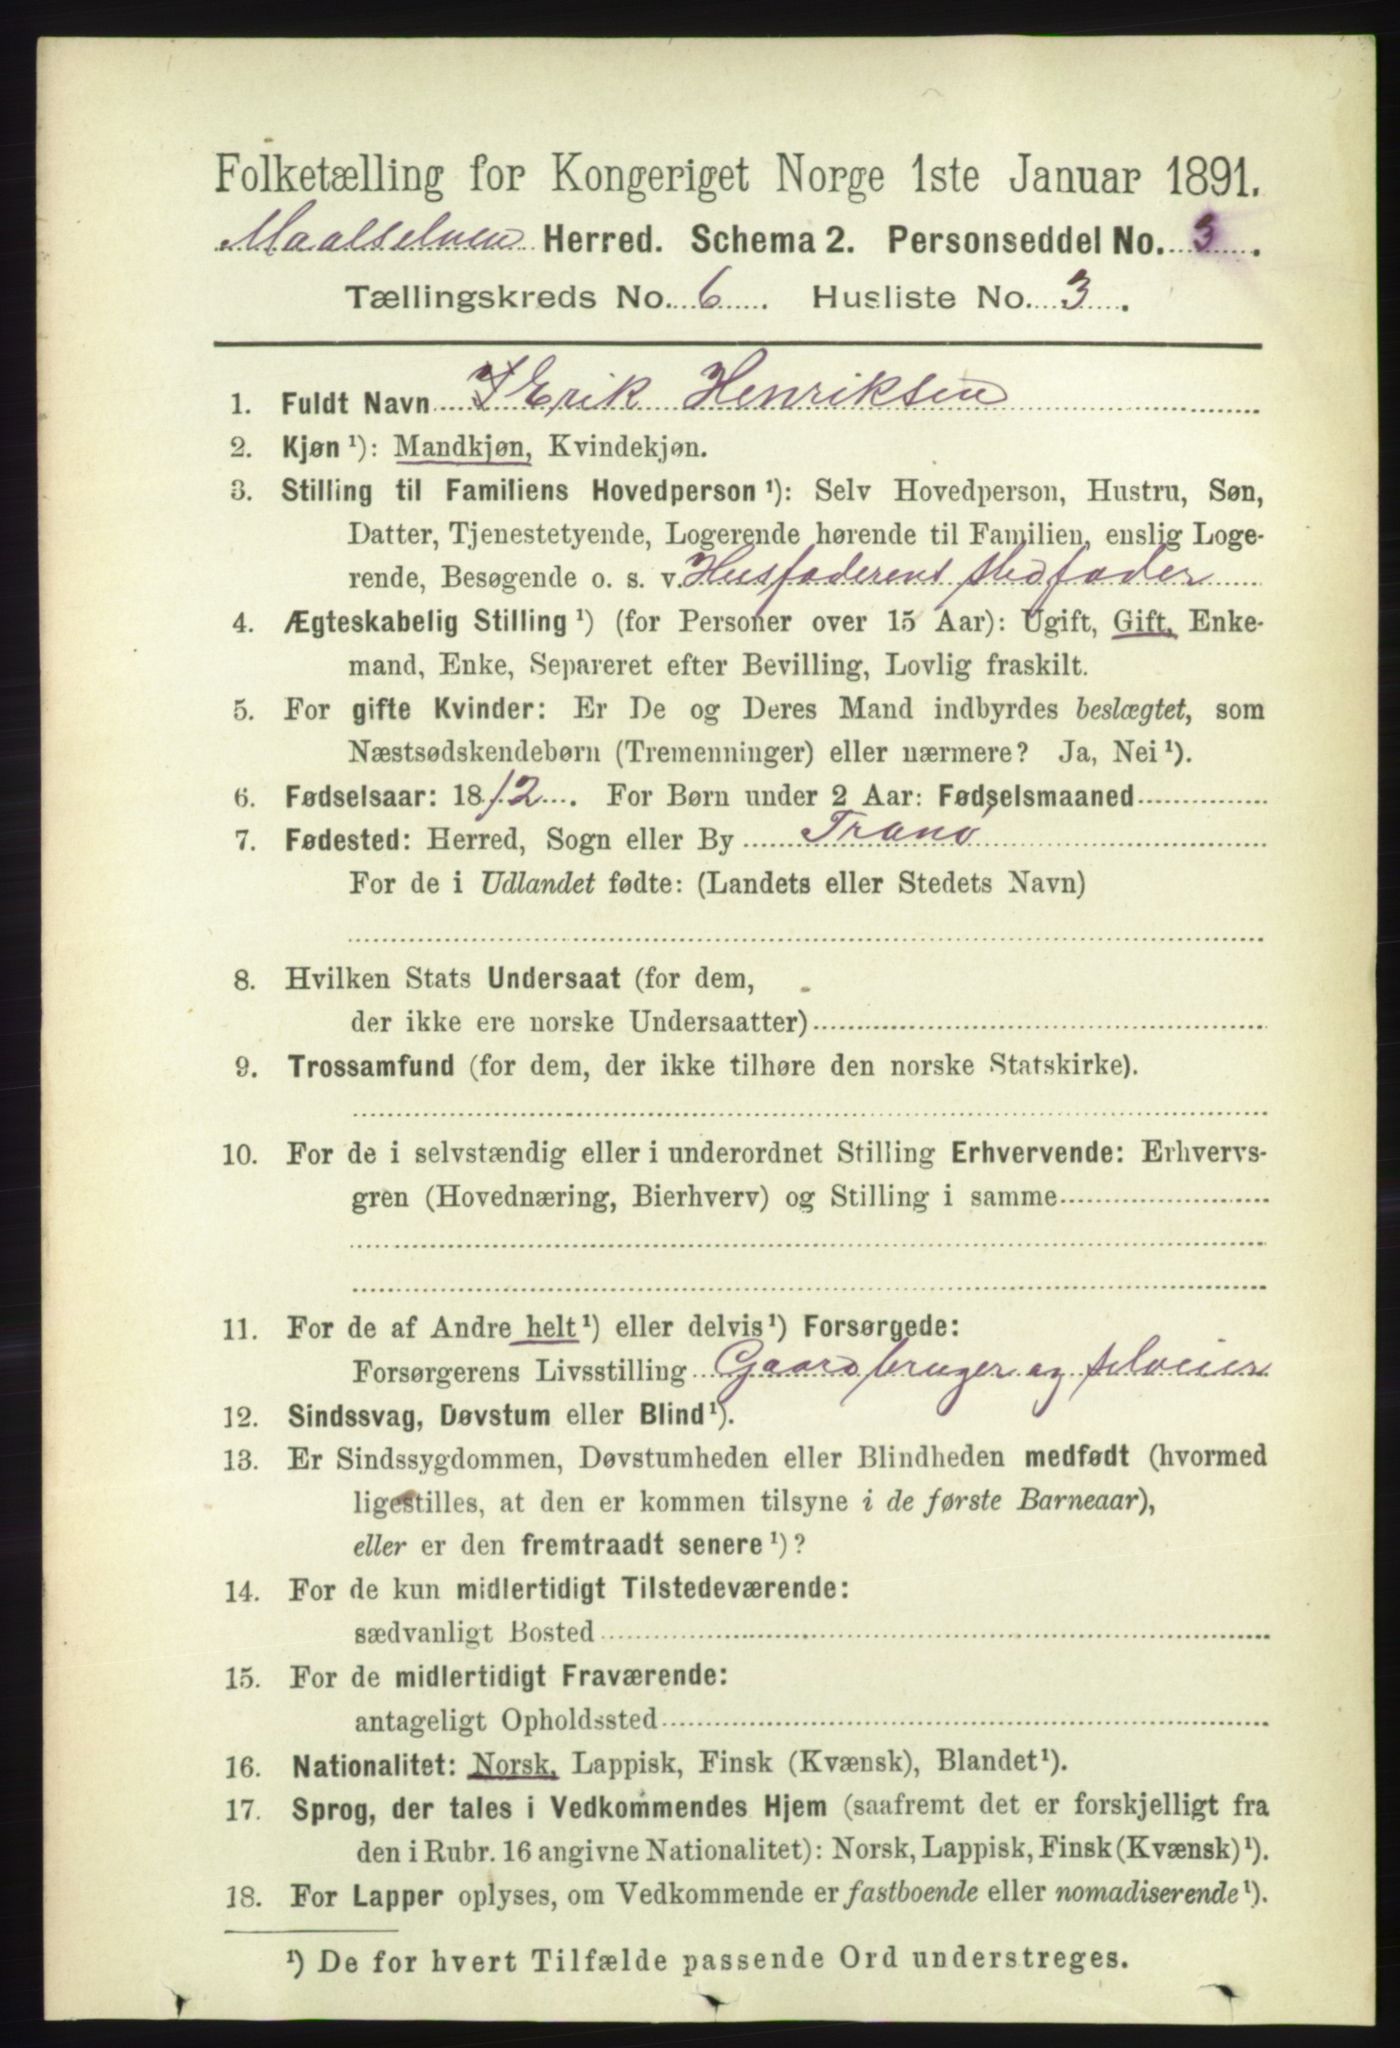 Folketælling for Kongeriget Norge 1ste Januar 1891.
Maalselven Herred. Schema 2. Personseddel No. 3.
Tællingskreds No. 6. Husliste No. 3.
1. Fuldt Navn Erik Henriksen
2. Kjøn ¹): Mandkjøn, Kvindekjøn.
3. Stilling til Familiens Hovedperson ¹): Selv Hovedperson, Hustru, Søn,
Datter, Tjenestetyende, Logerende hørende til Familien, enslig Loge-
rende, Besøgende o. s. v. Husfaderens stedfader
4. Ægteskabelig Stilling ¹) (for Personer over 15 Aar): Ugift, Gift, Enke-
mand, Enke, Separeret efter Bevilling, Lovlig fraskilt.
5. For gifte Kvinder: Er De og Deres Mand indbyrdes beslægtet, som
Næstsødskendebørn (Tremenninger) eller nærmere? Ja, Nei ¹).
6. Fødselsaar: 1812. For Børn under 2 Aar: Fødselsmaaned
7. Fødested: Herred, Sogn eller By Tranø
For de i Udlandet fødte: (Landets eller Stedets Navn)
8. Hvilken Stats Undersaat (for dem,
der ikke ere norske Undersaatter)
9. Trossamfund (for dem, der ikke tilhøre den norske Statskirke).
10. For de i selvstændig eller i underordnet Stilling Erhvervende: Erhvervs-
gren (Hovednæring, Bierhverv) og Stilling i samme
11. For de af Andre helt ¹) eller delvis ¹) Forsørgede:
Forsørgerens Livsstilling Gaardbruger og selveier
12. Sindssvag, Døvstum eller Blind ¹).
13. Er Sindssygdommen, Døvstumheden eller Blindheden medfødt (hvormed
ligestilles, at den er kommen tilsyne i de første Barneaar),
eller er den fremtraadt senere ¹)?
14. For de kun midlertidigt Tilstedeværende:
sædvanligt Bosted
15. For de midlertidigt Fraværende:
antageligt Opholdssted
16. Nationalitet: Norsk, Lappisk, Finsk (Kvænsk), Blandet ¹).
17. Sprog, der tales i Vedkommendes Hjem (saafremt det er forskjelligt fra
den i Rubr. 16 angivne Nationalitet): Norsk, Lappisk, Finsk (Kvænsk) ¹).
18. For Lapper oplyses, om Vedkommende er fastboende eller nomadiserende ¹).
¹) De for hvert Tilfælde passende Ord understreges.